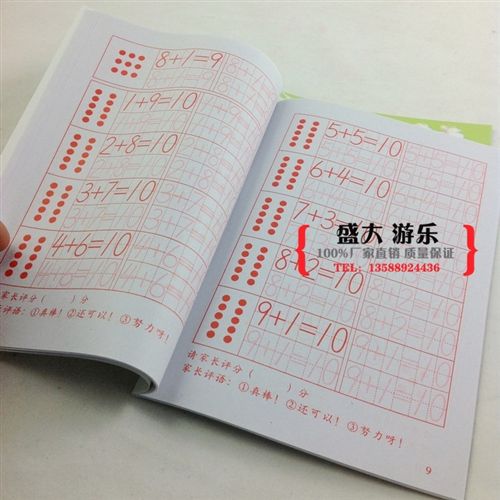 8+1=9
1+9=10
2+8=10
3+7=10
4+6=10
家长评分（ ）分
评语：①真棒！②还可以！③努力呀！
5+5=10
6+4=10
7+3
8+2=10
9+1=10
请家长评分（ ）分
家长评语：①真棒！②还可以！③努力呀！
9
盛大 游乐
100%厂家直销 质量保证
TEL：13588924436